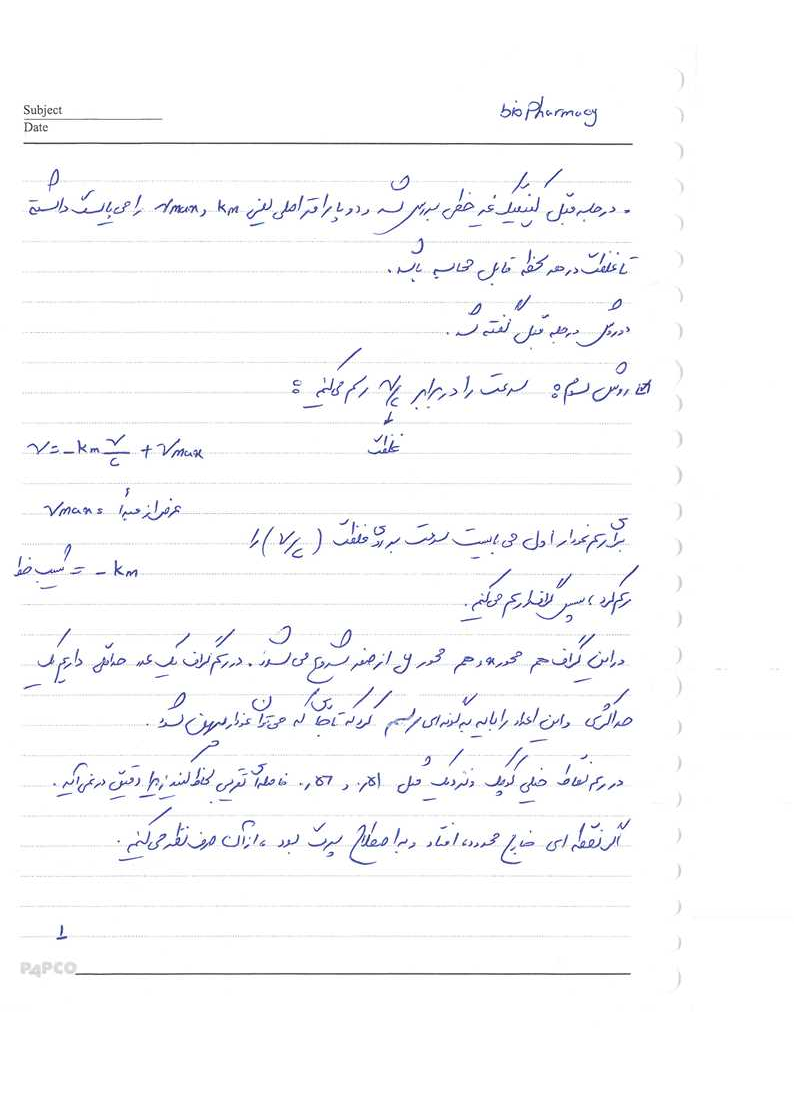 Subject
Date
bioPharmacy
• در جلسه قبل کینتیک غیر خطی بررسی شد و دو پارامتر اصلی یعنی km و vmax را می بایست دانسته
تا غلظت در هر لحظه قابل محاسبه باشد.
دو روش در جلسه قبل گفته شد.
روش سوم: سرعت را در برابر v/c رسم می کنیم:
غلظت
v = -km v/c + vmax
عرض از مبدأ = vmax
برای رسم نمودار اول می بایست سرعت بر روی غلظت (v/c) را
شیب خط = -km
رسم کرد، سپس گراف را رسم می کنیم.
در این گراف هم محور x و هم محور y از صفر شروع می شوند. در رسم گراف یک عدد حداقلی داریم یک
حداکثری و این اعداد را باید به گونه ای رسم کرد که تا جای که می توان نمودار پهن شود.
در رسم نقاط خیلی کوچک و نزدیک مثل فاصله ای تقریبی لحاظ کنید زیرا دقیق در نمی آید.
اگر نقطه ای خارج محدوده افتاد و به اصطلاح پرت بود، از آن صرف نظر می کنیم.
1
PAPCO